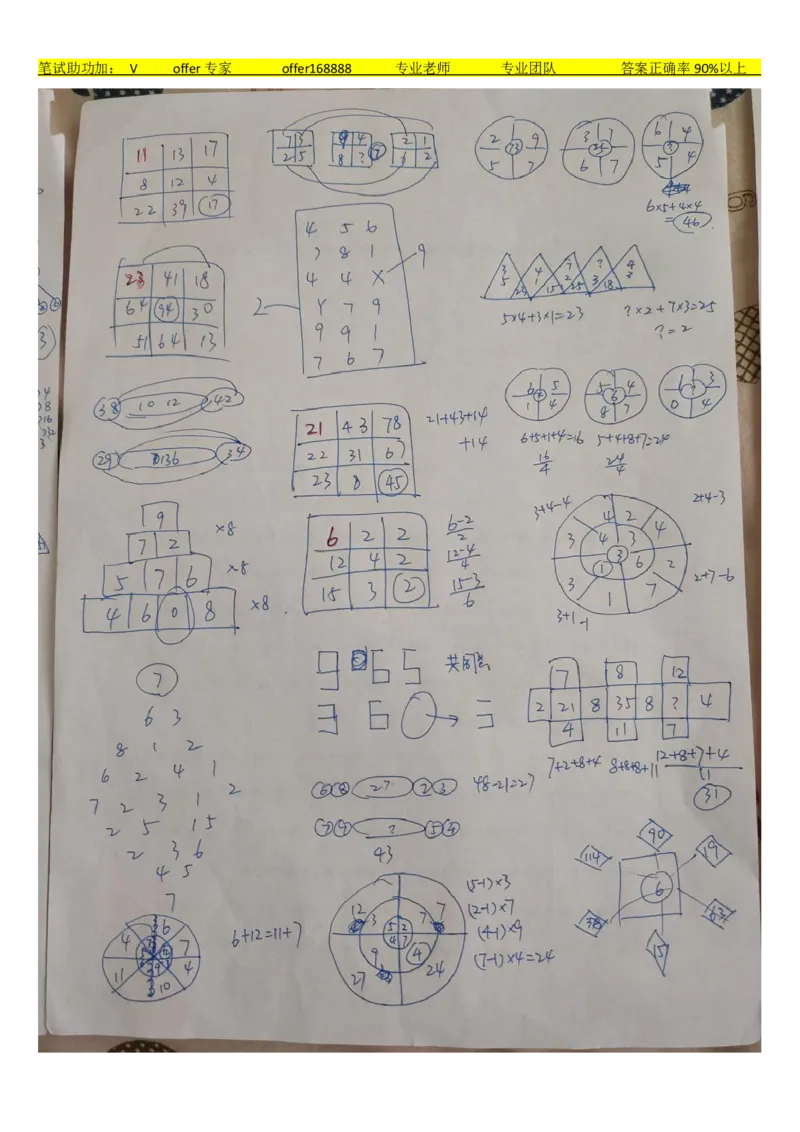 笔试助功加: V offer 专家 offer168888 专业老师 专业团队 答案正确率 90%以上
11 13 17
8 12 4
22 39 17
7 3
2 5
9 4
8 ?
7
2 1
3 2
2 9
73
5 7
3 1
24
6 7
6 4
?
5 4
6×5+4×4
=46
23 41 18
64 94 30
51 64 13
4 5 6
7 8 1
4 4 X
9
2
Y 7 9
9 9 1
7 6 7
5×4+3×1=23
?×2+7×3=25
?=2
38 10 12 42
29 34
21 43 78
22 31 67
23 8 45
21+43+14
+14
6 5
1 4
5 4
6
8 7
6 3
?
0 4
6+5+1+4=16
16
4
5+4+8+7=24
24
4
9
7 2 ×8
5 7 6 ×8
4 6 0 8 ×8
6 2 2
12 4 2
15 3 2
6-2
2
12-4
4
15-3
6
3+4-4
2+4-3
4 2
3 4 3 4
3
1 6 2
3 1 7
2+7-6
3+1-1
9 65
3 6
7 8 12
2 21 8 35 8 ? 4
4 11 7
7+2+8+4
8+8+8+11
12+8+7+4
11
31
7
6 3
8 1 2
6 2 4 1
7 2 3 1 2
2 5 1 5
2 3 6
4 5
7
6 8 27 2 3
48-21=27
7 9 ? 5 4
43
6+12=11+7
12 3 7 7
5 2
4 7
27 9 4 24
(5-1)×3
(2-1)×7
(4-1)×9
(7-1)×4=24
90
114 19
6
63
15